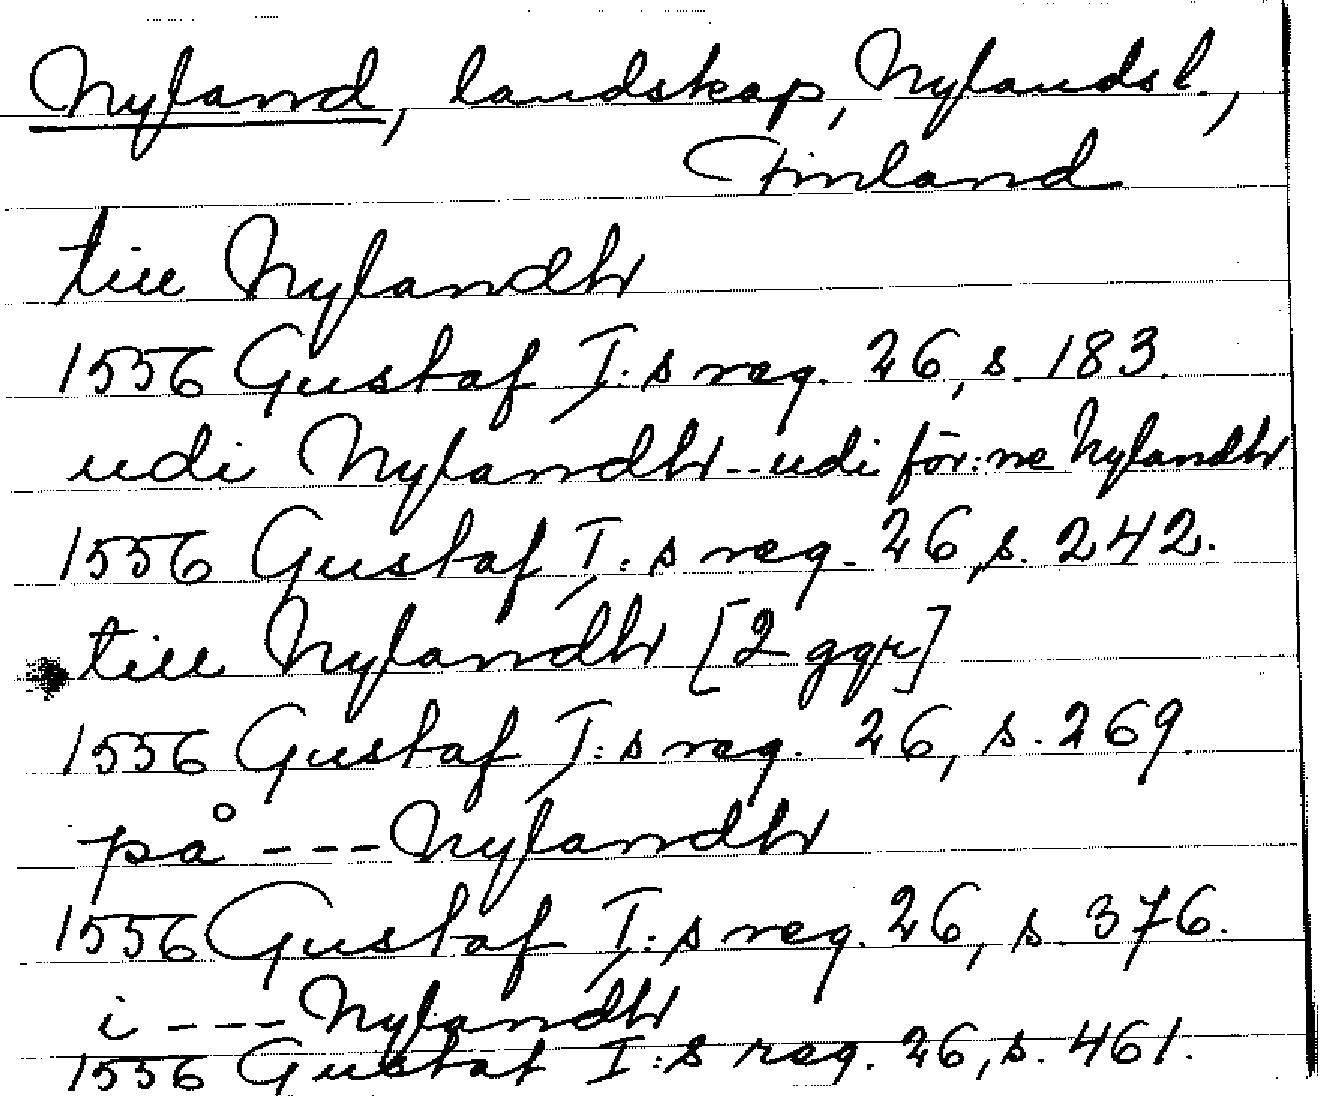 Nyland, landskap, Nylandsl.,
Finland
till Nylandh
1556 Gustaf I:s reg. 26, s. 183.
udi Nylandh -- udi för:ne Nylandh
1556 Gustaf I:s reg. 26, s. 242.
till Nylandh [2 ggr]
1556 Gustaf I:s reg. 26, s. 269.
på --- Nylandh
1556 Gustaf I:s reg. 26, s. 376.
i --- Nylandh
1556 Gustaf I:s reg. 26, s. 461.